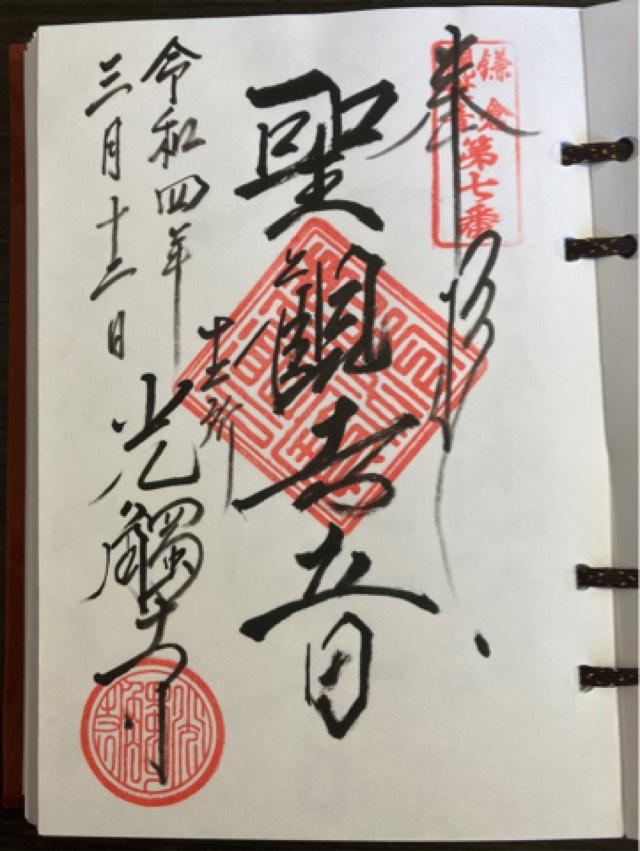 奉拝
鎌倉
観世音
第七番
聖觀世音
十二所
光觸寺
令和四年
三月十二日